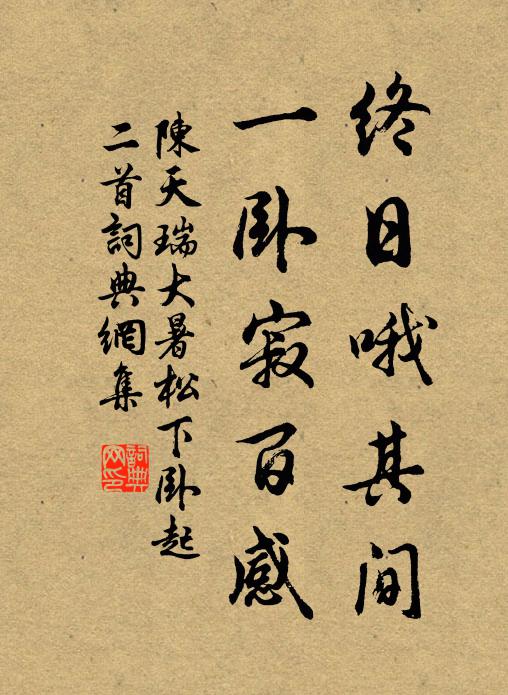 終日哦其间
一卧寂百感
陳天瑞大暑松下卧起
二首詞典網集
詞典
网印